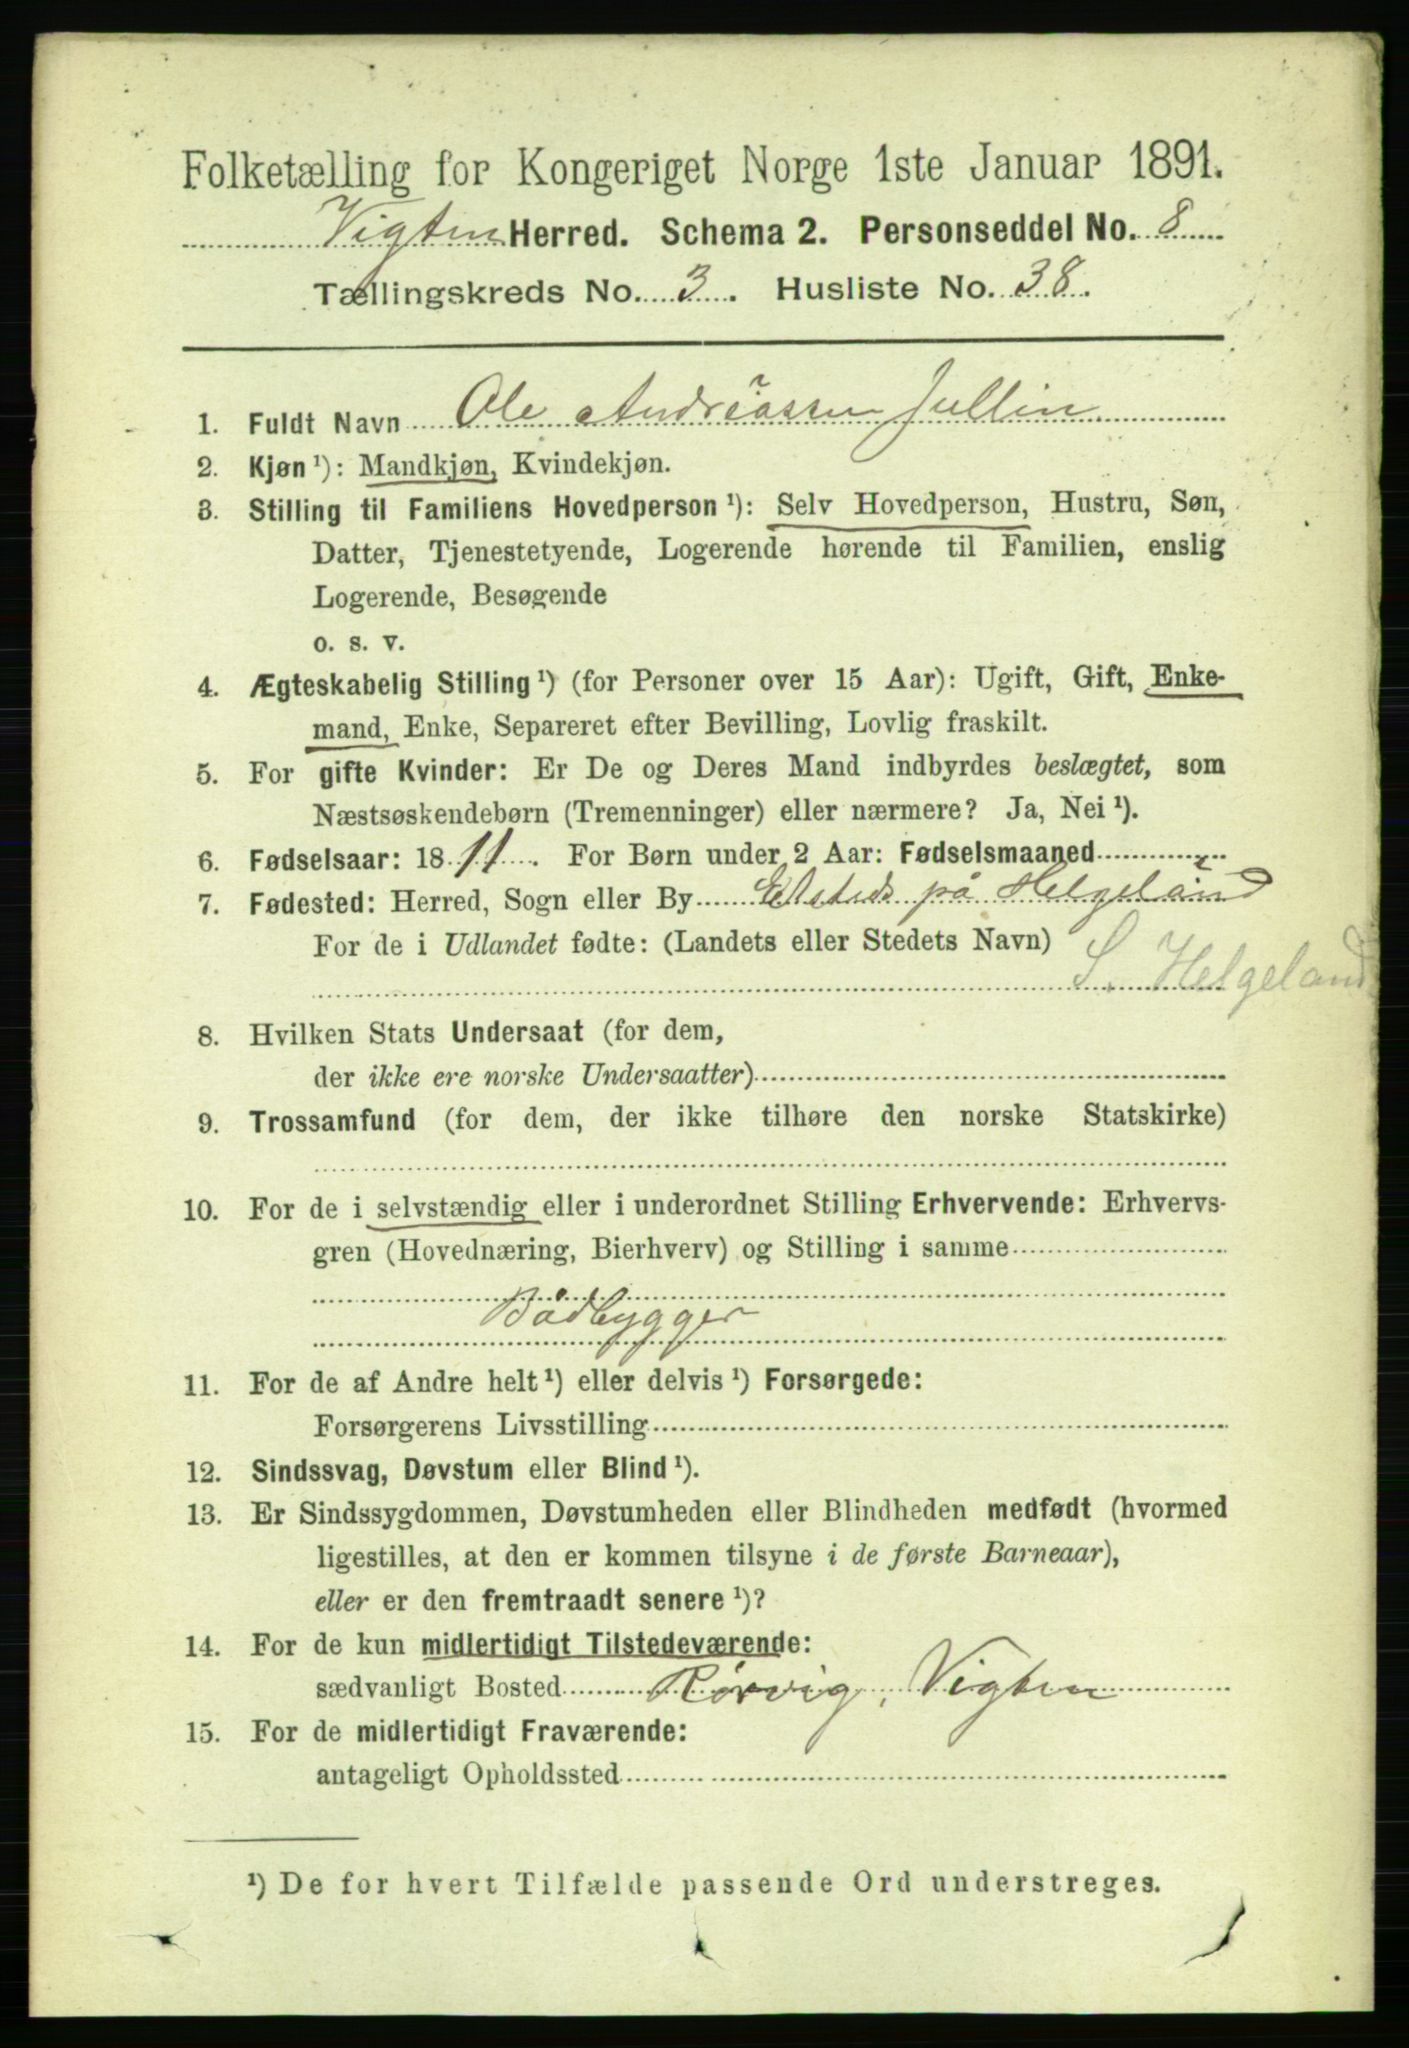 Folketælling for Kongeriget Norge 1ste Januar 1891.
Vigten Herred. Schema 2. Personseddel No. 8
Tællingskreds No. 3. Husliste No. 38.
1. Fuldt Navn Ole Andreassen Jullin
2. Kjøn ¹): Mandkjøn, Kvindekjøn.
3. Stilling til Familiens Hovedperson ¹): Selv Hovedperson, Hustru, Søn,
Datter, Tjenestetyende, Logerende hørende til Familien, enslig
Logerende, Besøgende
o. s. v.
4. Ægteskabelig Stilling ¹) (for Personer over 15 Aar): Ugift, Gift, Enke-
mand, Enke, Separeret efter Bevilling, Lovlig fraskilt.
5. For gifte Kvinder: Er De og Deres Mand indbyrdes beslægtet, som
Næstsøskendebørn (Tremenninger) eller nærmere? Ja, Nei ¹).
6. Fødselsaar: 1811. For Børn under 2 Aar: Fødselsmaaned
7. Fødested: Herred, Sogn eller By på Helgeland
For de i Udlandet fødte: (Landets eller Stedets Navn)
S. Helgeland
8. Hvilken Stats Undersaat (for dem,
der ikke ere norske Undersaatter)
9. Trossamfund (for dem, der ikke tilhøre den norske Statskirke)
10. For de i selvstændig eller i underordnet Stilling Erhvervende: Erhvervs-
gren (Hovednæring, Bierhverv) og Stilling i samme
Bådbygger
11. For de af Andre helt ¹) eller delvis ¹) Forsørgede:
Forsørgerens Livsstilling
12. Sindssvag, Døvstum eller Blind ¹).
13. Er Sindssygdommen, Døvstumheden eller Blindheden medfødt (hvormed
ligestilles, at den er kommen tilsyne i de første Barneaar),
eller er den fremtraadt senere ¹)?
14. For de kun midlertidigt Tilstedeværende:
sædvanligt Bosted Rörvig, Vigten
15. For de midlertidigt Fraværende:
antageligt Opholdssted
¹) De for hvert Tilfælde passende Ord understreges.